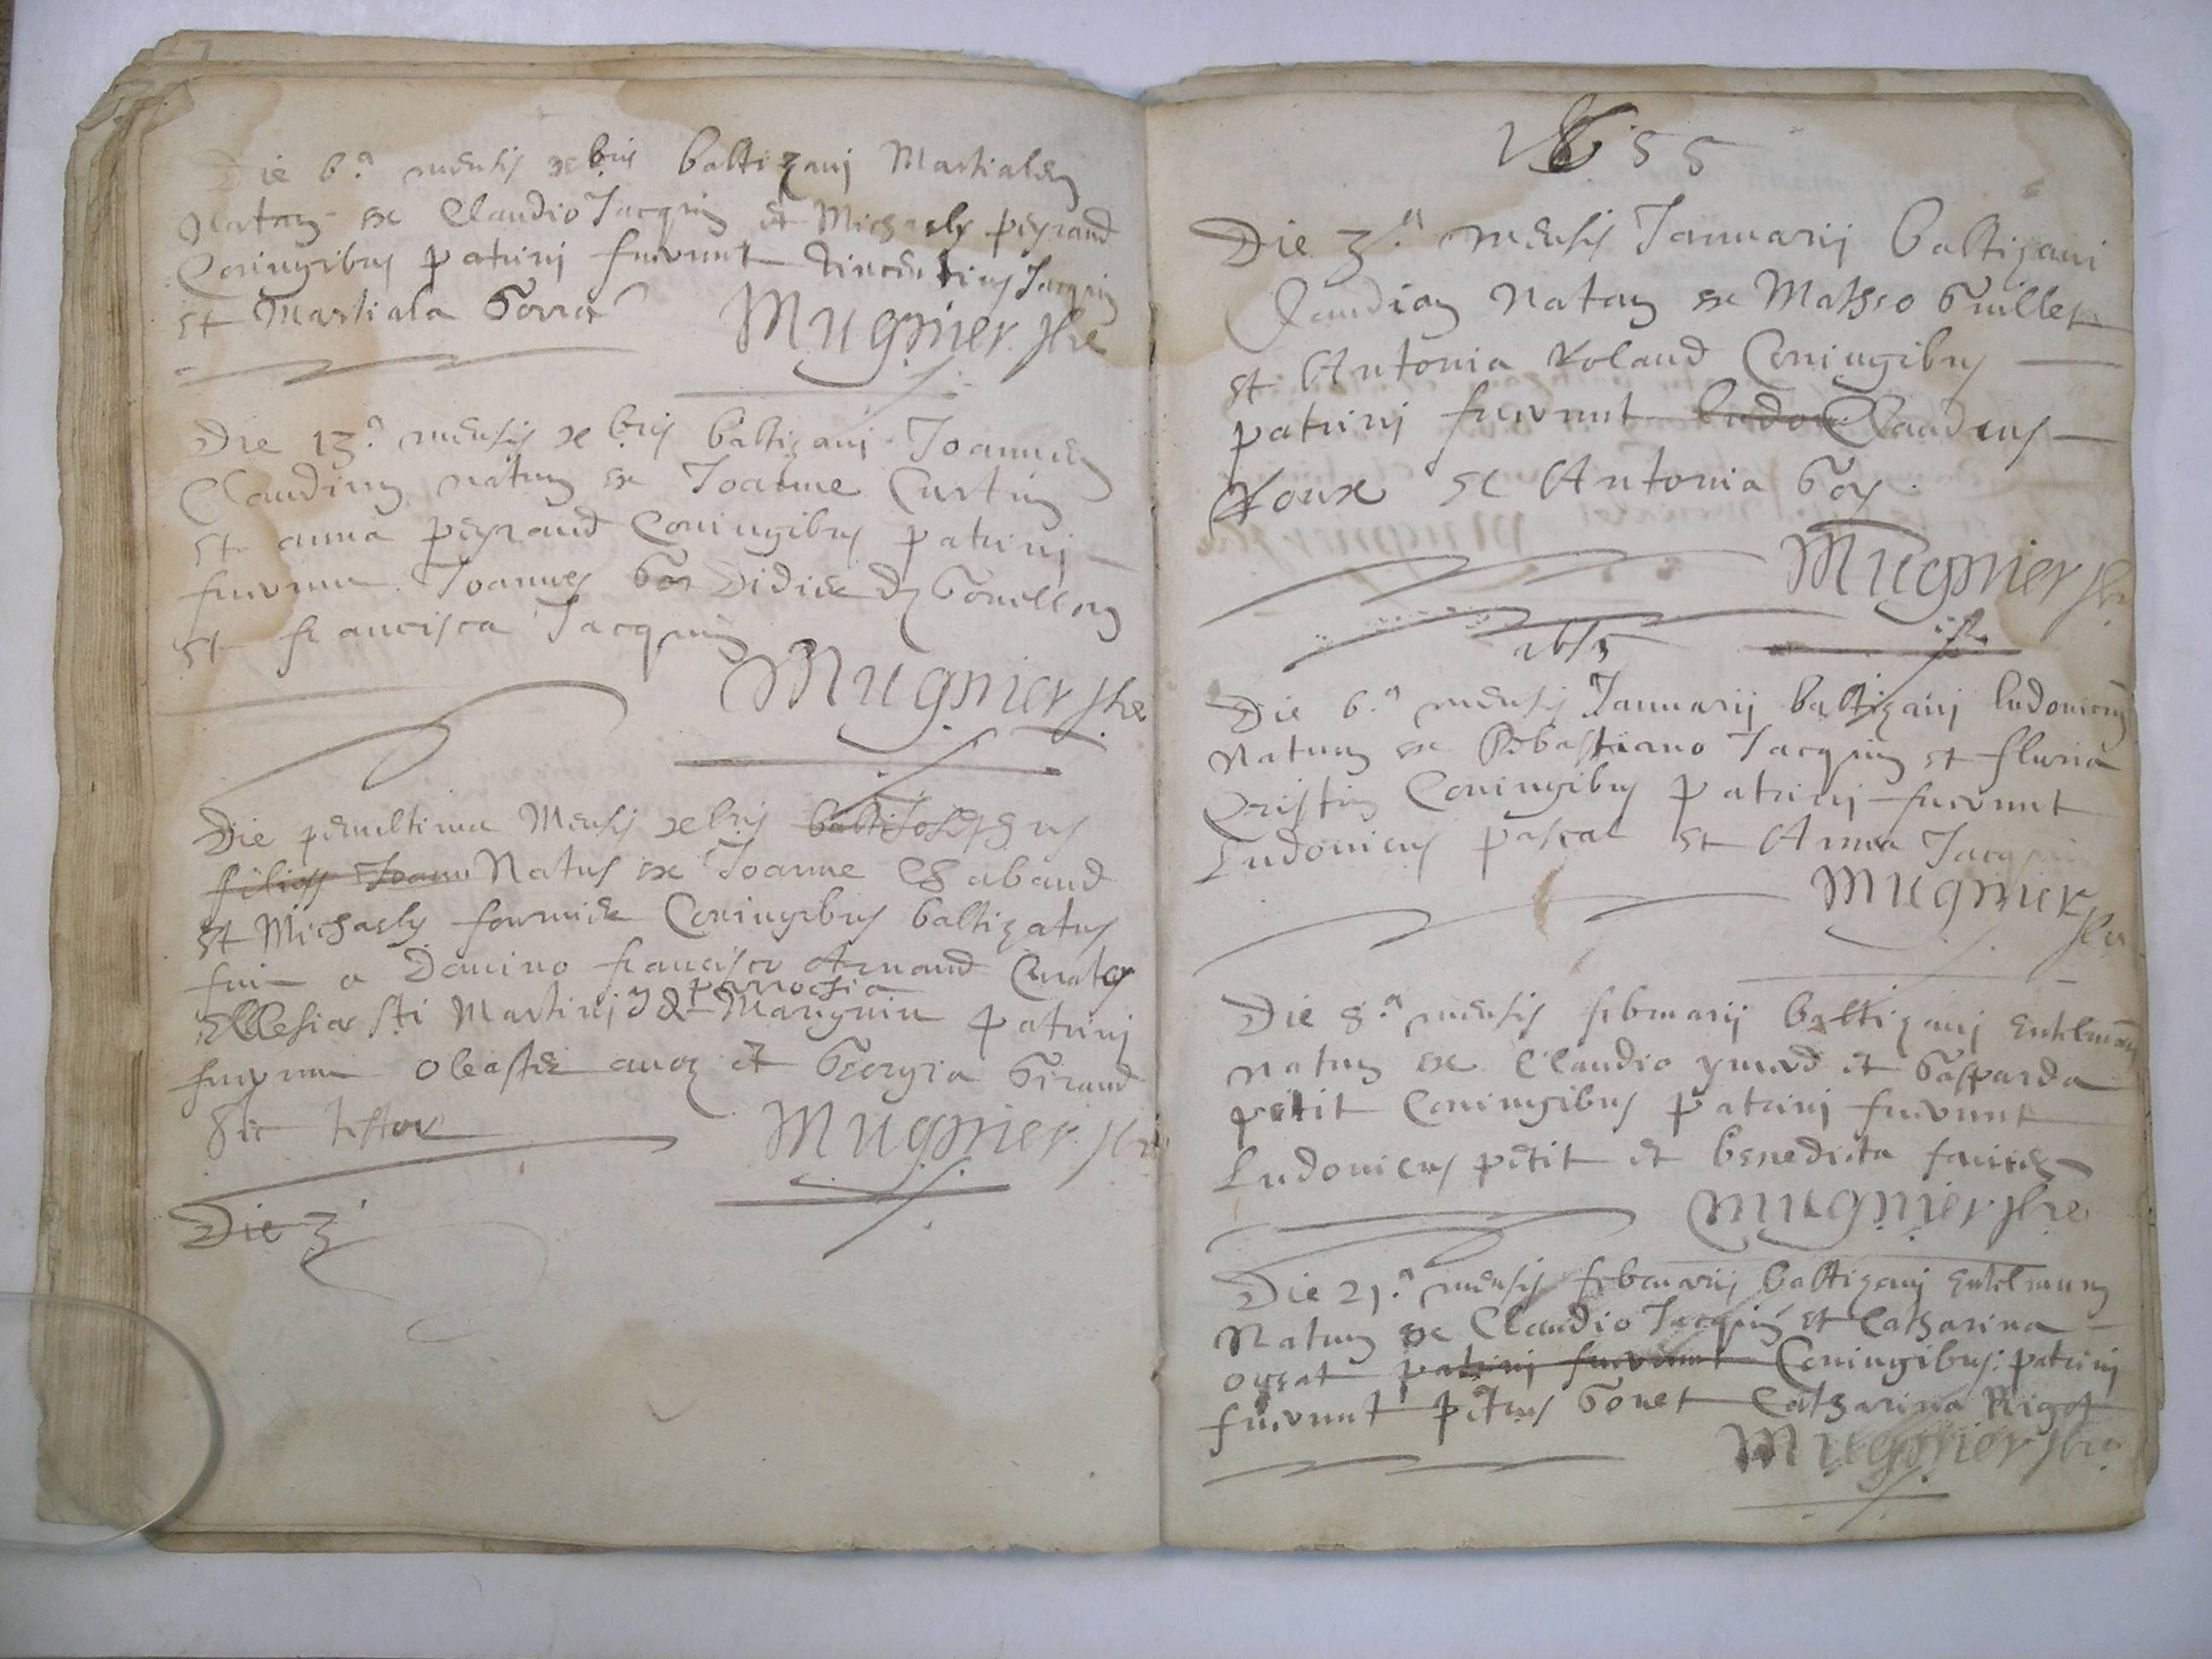 Die 6.a mensis xbris baptizavi Martialem
Natam ex Claudio Jacquin et Michaely peyraud
Coniugibus patrini fuerunt Vincentius Jacquin
et Martiala
Mugnier pbre
Die 13.a mensis xbris baptizavi Joannem
Claudium natum ex Joanne Curtin
et anna peyraud Coniugibus patrini
fuerunt Joannes
et francisca Jacquin
Mugnier pbre
Die penultima Mensis xbris bapti Josephus
filius Joann Natus ex Joanne Chabaud
et Michaely fournier Coniugibus baptizatus
fuit a Domino francisco Arnaud Curato
parrochia
Ecclesiae Sti Martini
patrini
fuerunt et Georgia Giraud
Sic testor
Mugnier pbre
Die 3
1655
Die 3.a mensis Januarij baptizavi
Claudiam Natam ex Matheo Guillet
et Antonia Roland Coniugibus
patrini fuerunt Ludov Claudius
Roux et Antonia Gay
Mugnier pbre
Die 6.a mensis Januarij baptizavi ludovicum
Natum ex Sebastiano Jacquin et fluria
Cristin Coniugibus patrini fuerunt
Ludovicus pascal et Anna Jacquin
Mugnier
pbre
Die 8.a mensis februarij baptizavi Entelmum
natum ex Claudio ymad et Gasparda
petit Coniugibus patrini fuerunt
Ludovicus petit et benedicta
Mugnier pbre
Die 21.a mensis februarij baptizavi Entelmum
Natum ex Claudio Jacquin et Catharina
patrini fuerunt Coniugibus: patrini
fuerunt petrus Gonet Catharina Rigot
Mugnier pbre